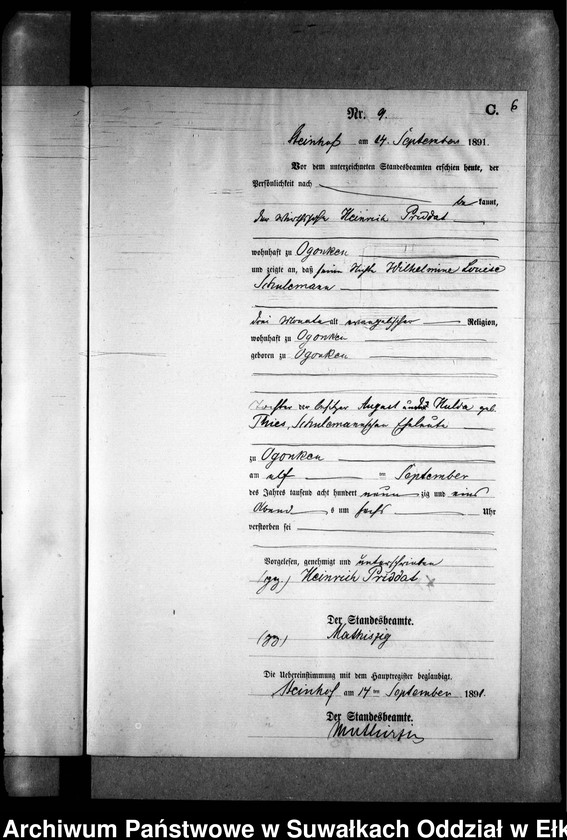 C. 6
Nr. 9.
Steinhof am 14. September 1891.
Vor dem unterzeichneten Standesbeamten erschien heute, der
Persönlichkeit nach
be kannt,
der Heinrich Priddat
wohnhaft zu Ogonken
und zeigte an, daß Wilhelmine Louise
Schulemann
drei Monate alt evangelischer Religion,
wohnhaft zu Ogonken
geboren zu Ogonken
Tochter der Besitzer August und Hulda geb.
Thies, Schulemannschen Eheleute
zu Ogonken
am elf ten September
des Jahres tausend acht hundert neun zig und eins
Abend s um sechs Uhr
verstorben sei
Vorgelesen, genehmigt und unterschrieben
(gz.) Heinrich Priddat
Der Standesbeamte.
(gz)
Die Uebereinstimmung mit dem Hauptregister beglaubigt.
Steinhof am 14 ten September 1891.
Der Standesbeamte.
Archiwum Państwowe w Suwałkach Oddział w Ełk